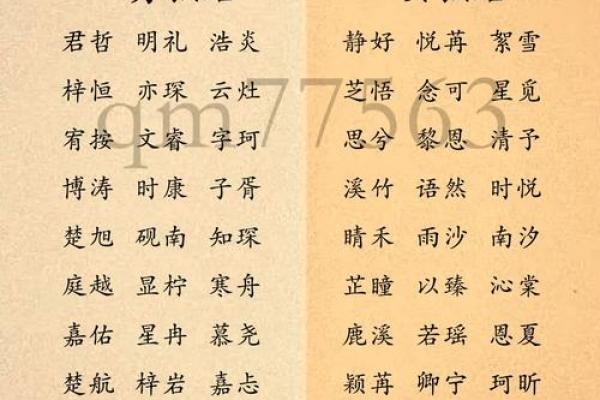 君哲 明礼 浩炎
梓恒 亦琛 云灶
宥按 文睿 字珂
博涛 时康 子胥
楚旭 砚南 知琛
庭越 显柠 寒舟
嘉佑 星冉 慕尧
楚航 梓岩 嘉忐
静好 悦苒 絮雪
芝悟 念可 星觅
思兮 黎恩 清予
溪竹 语然 时悦
晴禾 雨沙 南汐
芷瞳 以臻 沁棠
鹿溪 若瑶 恩夏
颖苒 卿宁 珂昕
qm77563